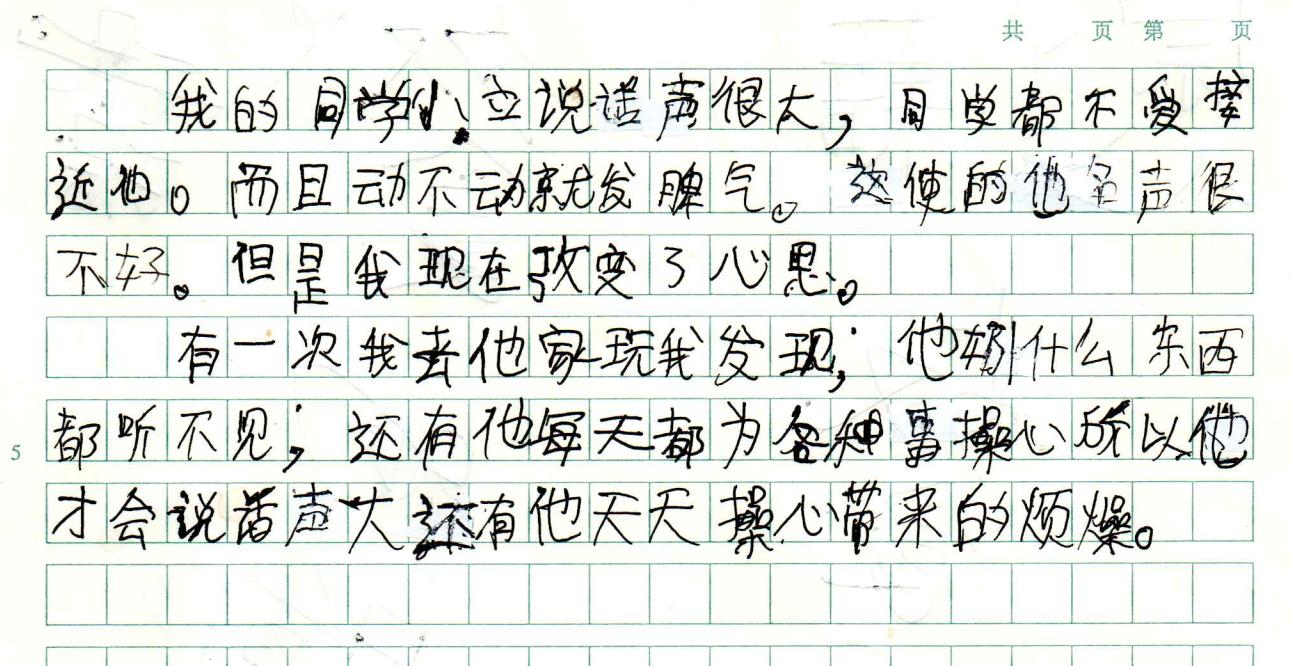 共 页 第 页
我的同学小立说话声很大,同学都不爱接
近他。而且动不动就发脾气。这使的他名声很
不好。但是我现在改变了心思。
有一次我去他家玩我发现;他奶什么东西
5 都听不见;还有他每天都为各种事操心所以他
才会说话声大还有他天天操心带来的烦燥。